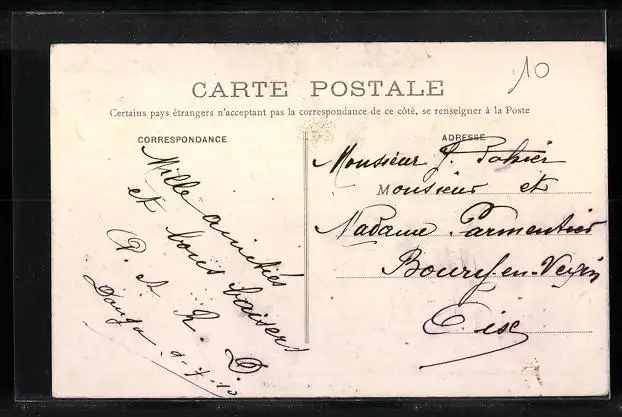 10
CARTE POSTALE
Certains pays étrangers n'acceptant pas la correspondance de ce côté, se renseigner à la Poste
CORRESPONDANCE
Mille amitiés
et bons baisers
ADRESSE
Monsieur
Monsieur et
Madame Parmentier
Boury-en-Vexin
Oise